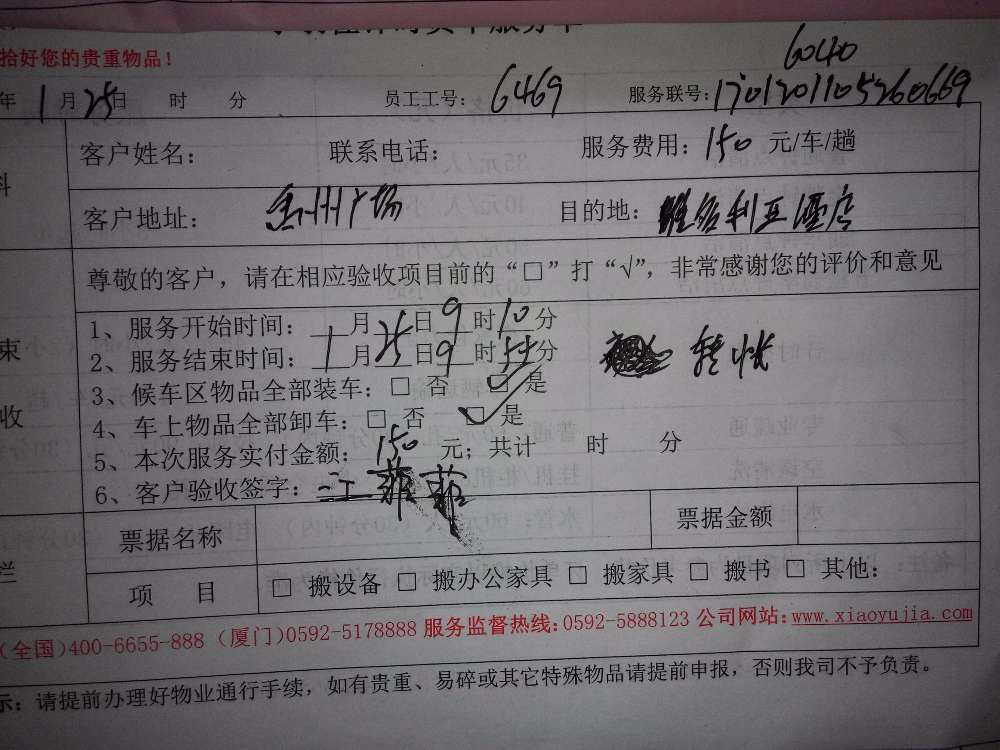 拾好您的贵重物品！
年1月25日 时 分 员工工号：6469 服务联号：
6040
客户姓名： 联系电话： 服务费用：150 元/车/趟
客户地址： 广场 目的地： 利亚酒店
尊敬的客户，请在相应验收项目前的“□”打“√”，非常感谢您的评价和意见
1、服务开始时间： 月 日 9时10分
2、服务结束时间：1月25日9时55分
3、候车区物品全部装车：□ 否 □ 是
4、车上物品全部卸车：□ 否 □ 是
5、本次服务实付金额：150 元；共计 时 分
6、客户验收签字：江菲菲
束
收
票据名称 票据金额
栏
项 目 □ 搬设备 □ 搬办公家具 □ 搬家具 □ 搬书 □ 其他：
(全国)400-6655-888 (厦门)0592-5178888 服务监督热线:0592-5888123 公司网站:www.xiaoyujia.com
示：请提前办理好物业通行手续，如有贵重、易碎或其它特殊物品请提前申报，否则我司不予负责。